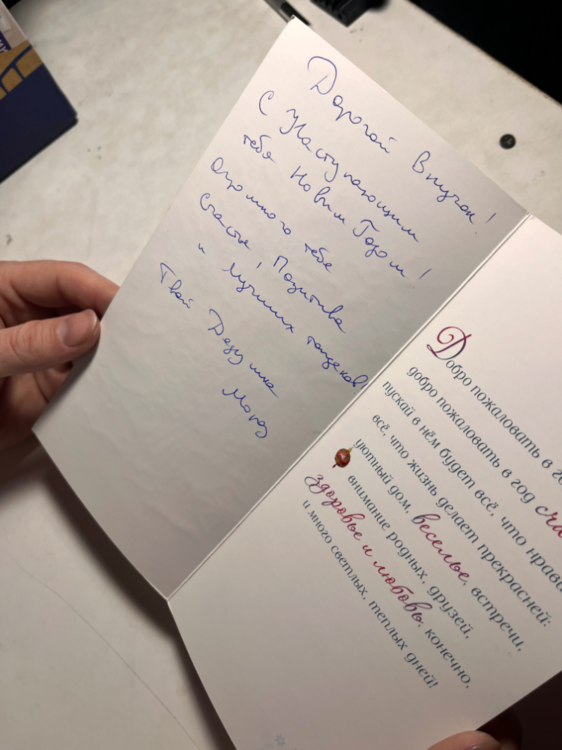 Дорогой Внучок!
С Наступающим
тебя Новым Годом!
Огромного тебе
счастья! Позитива
и лучших танцеков
Твой Дедушка
Мороз
Добро пожаловать в
добро пожаловать в год
пускай в нём будет всё, что
всё, что жизнь делает прекрасней:
уютный дом, веселье, встречи,
внимание родных, друзей,
здоровье и любовь, конечно,
и много светлых, теплых дней!